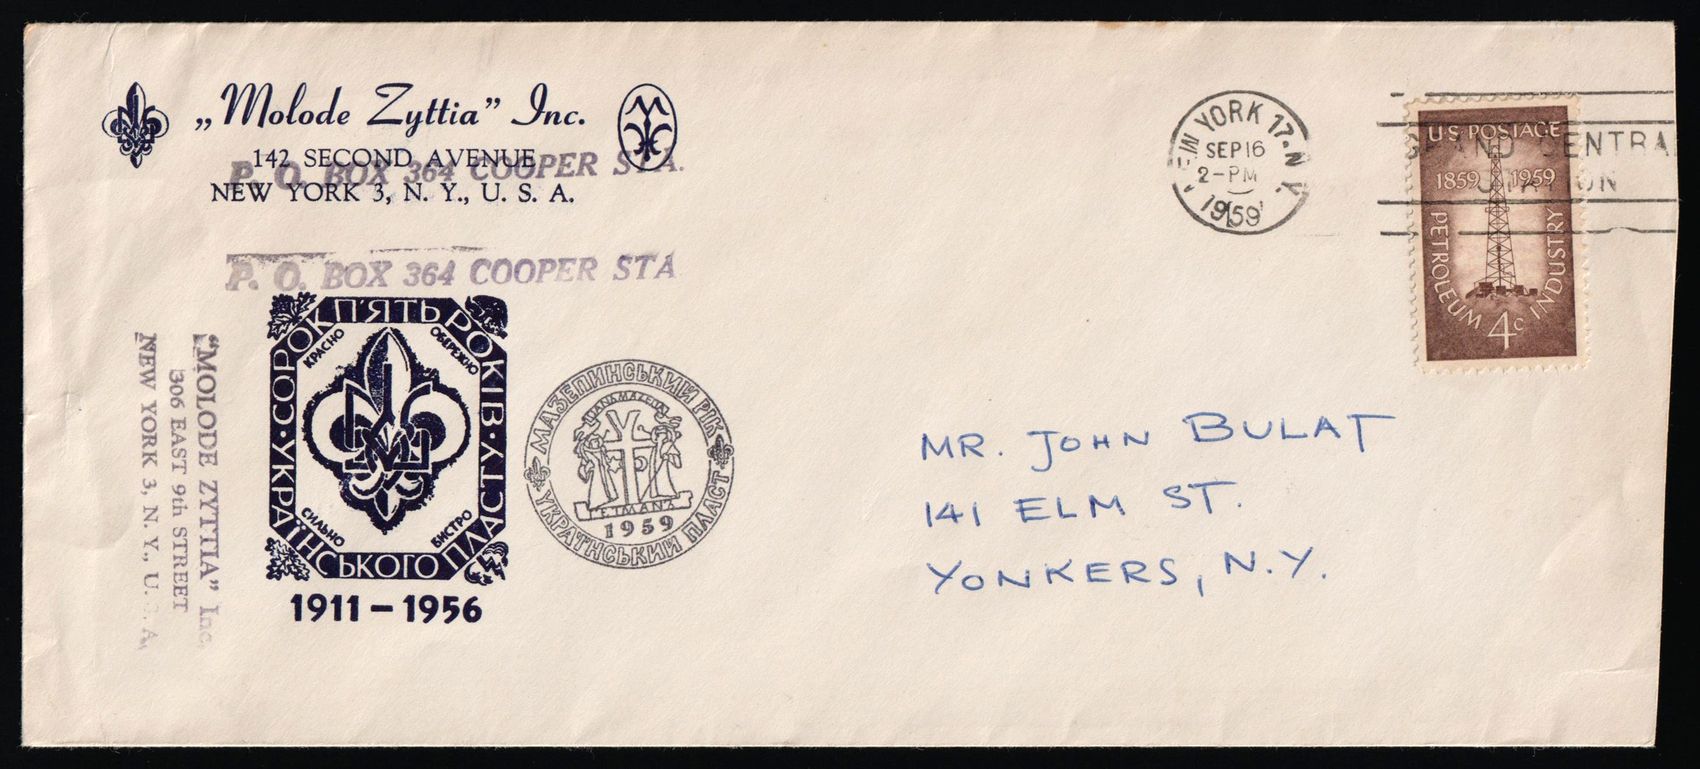 „Molode Zyttia” Inc.
142 SECOND AVENUE
P. O. BOX 364 COOPER STA.
NEW YORK 3, N. Y., U. S. A.
P. O. BOX 364 COOPER STA
"MOLODE ZYTTIA" Inc.
306 EAST 9th STREET
NEW YORK 3, N. Y., U. S. A.
СОРОК П'ЯТЬ РОКІВ УКРАЇНСЬКОГО ПЛАСТУ
КРАСНО
ОБЕРЕЖНО
СИЛЬНО
БИСТРО
1911 – 1956
МАЗЕПИНСЬКИЙ РІК
ІВАНА МАЗЕПИ
ГЕТМАНА
1959
УКРАЇНСЬКИЙ ПЛАСТ
NEW YORK 17. N.Y.
SEP 16
2 - PM
1959
GRAND CENTRAL
STATION
U.S. POSTAGE
1859 1959
PETROLEUM INDUSTRY
4c
MR. JOHN BULAT
141 ELM ST.
YONKERS, N.Y.